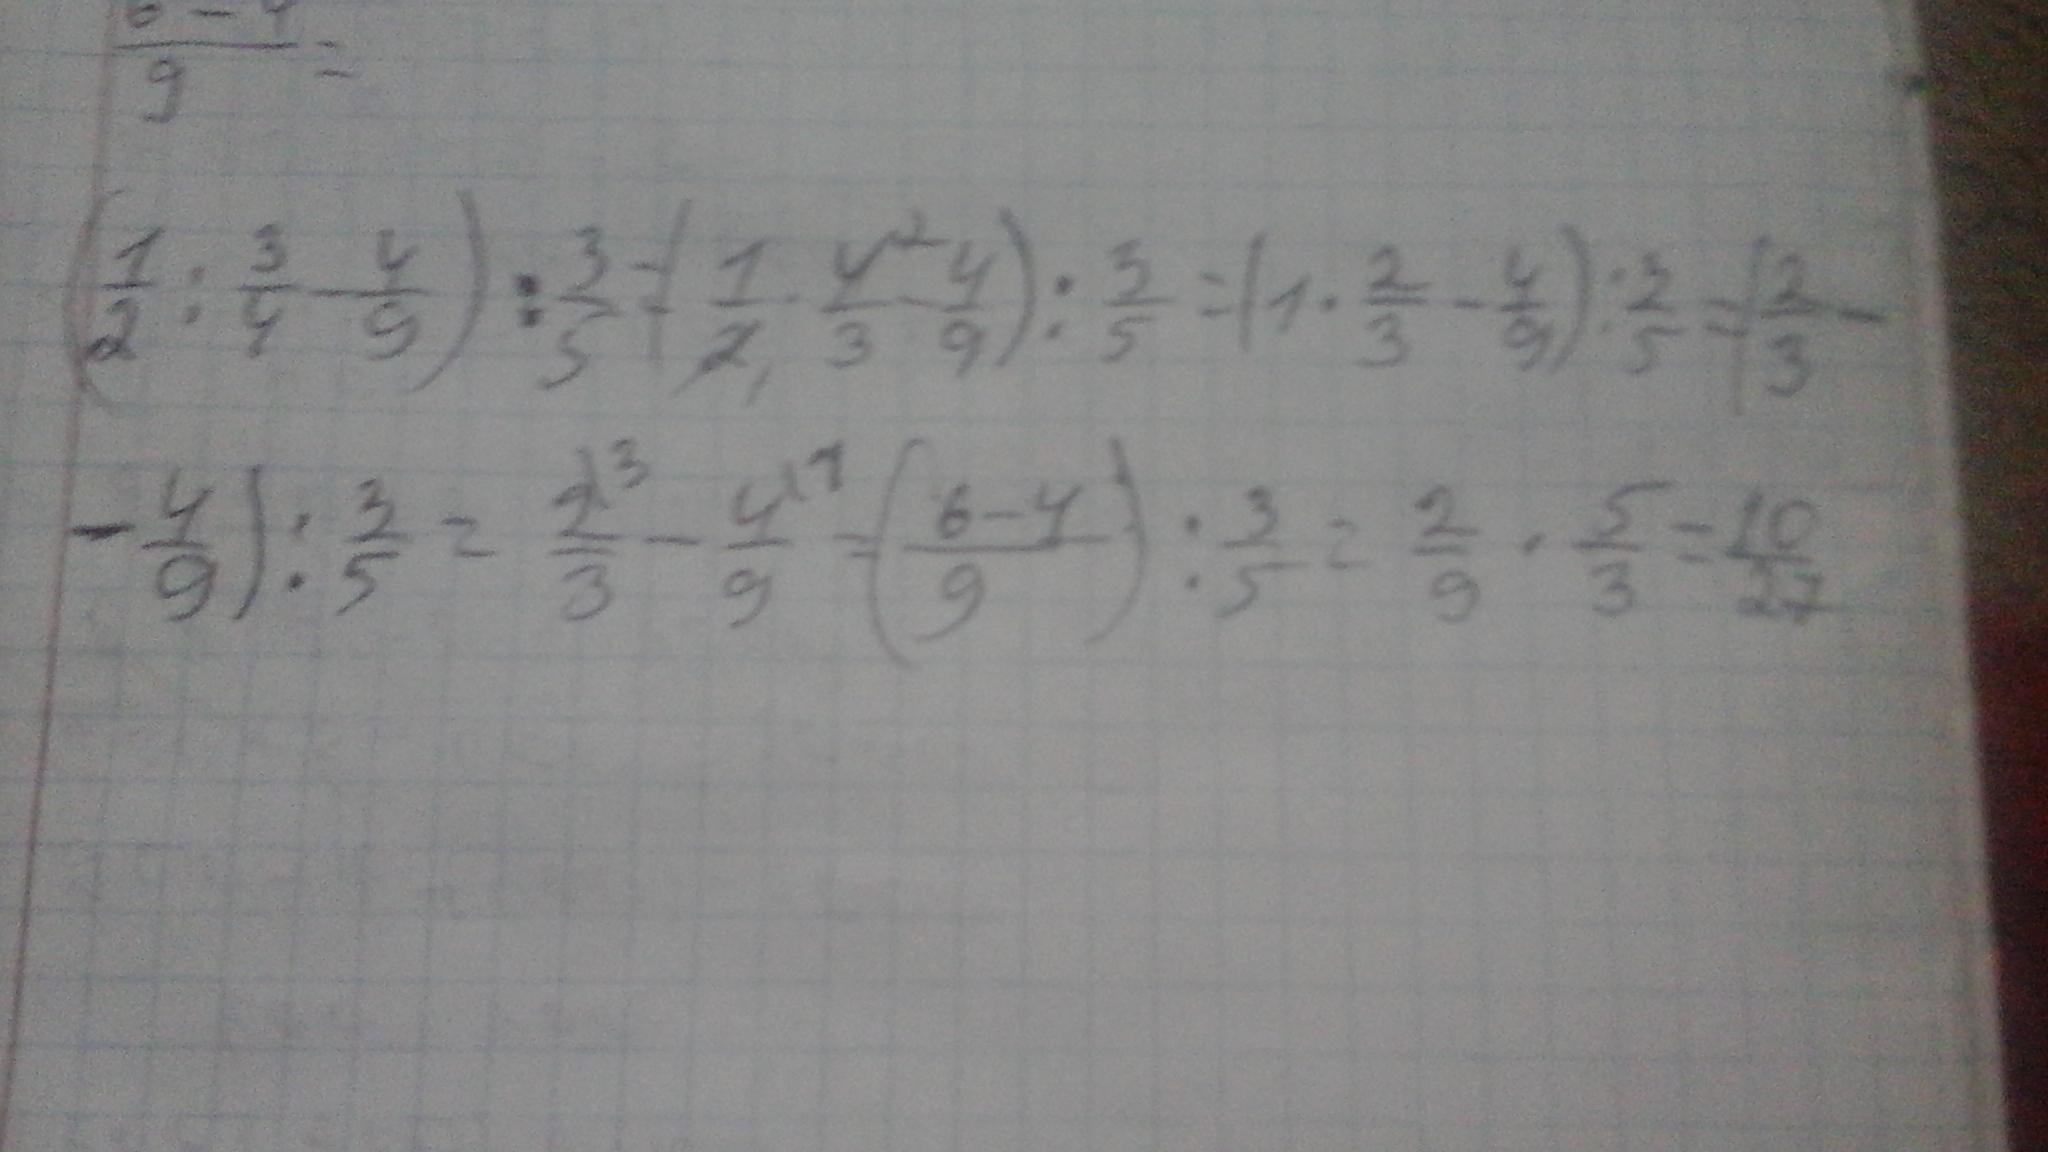 6-4/9 =
(1/2 : 3/4 - 4/9) : 3/5 = (1/2 · 4²/3 - 4/9) : 3/5 = (1 · 2/3 - 4/9) : 3/5 = (2/3 -
- 4/9) : 3/5 = 2\3/3 - 4\1/9 = (6-4/9) : 3/5 = 2/9 · 5/3 = 10/27